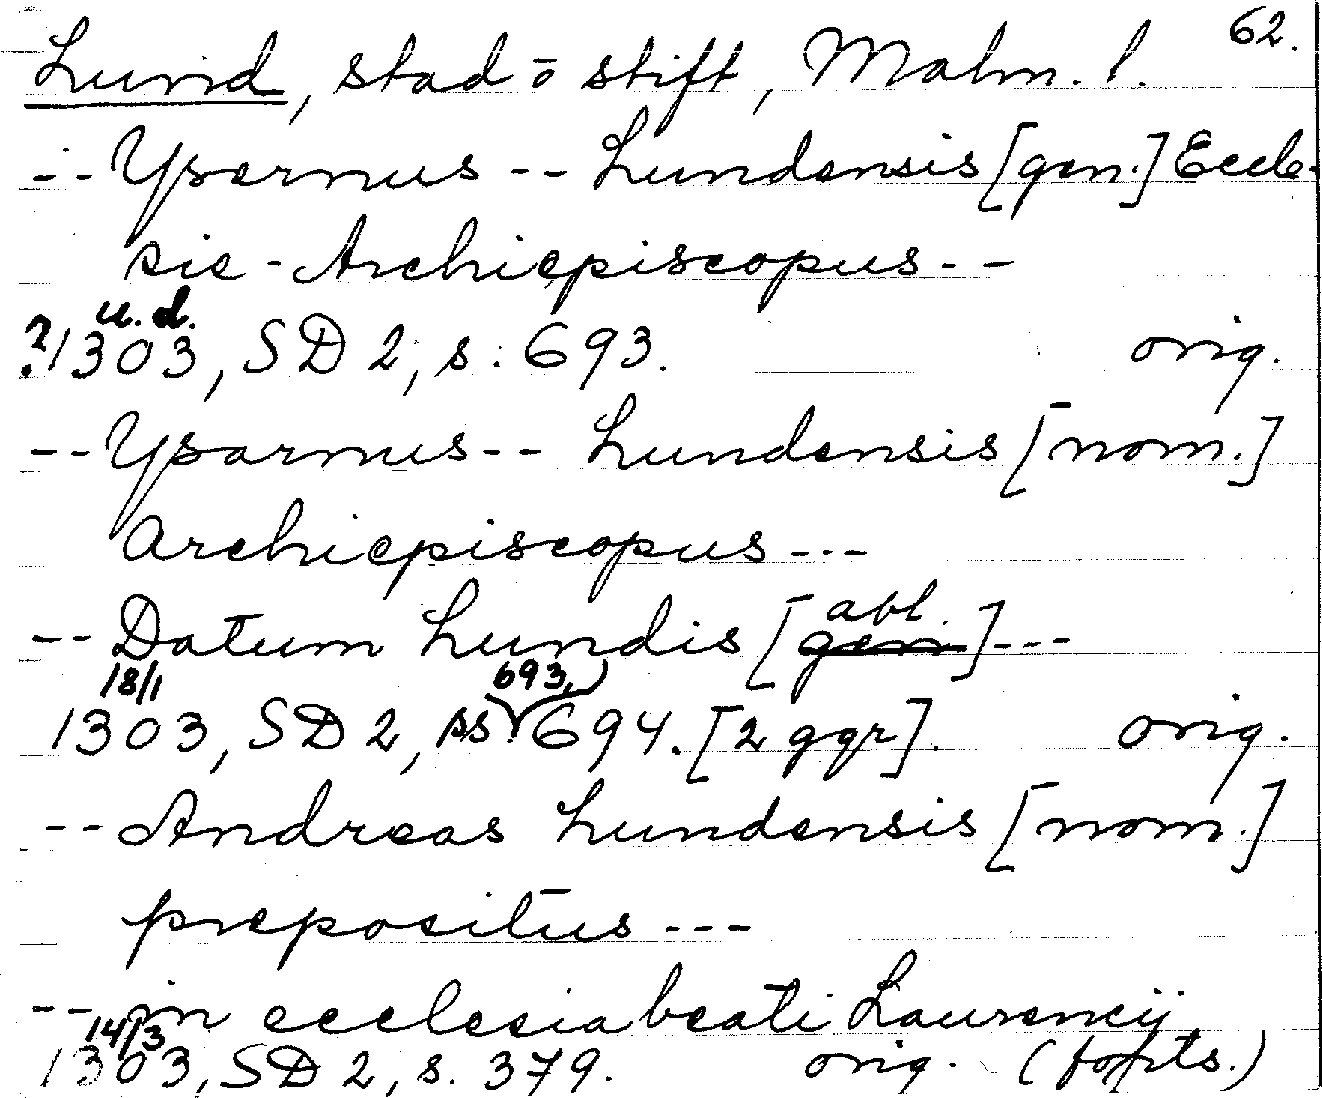 62.
Lund, stad o stift, Malm. l.
-- Ysernus -- Lundensis [gen.] Eccle-
sie - Archiepiscopus --
u. d.
?1303, SD 2, s. 693. orig.
-- Ysarnus -- Lundensis [nom.]
Archiepiscopus ---
abl.
-- Datum Lundis [gen] ---
18/1 693,
1303, SD 2, ss. 694. [2 ggr]. orig.
-- Andreas Lundensis [nom.]
prepositus ---
-- in ecclesia beati Laurencij
14/3
1303, SD 2, s. 379. orig. (forts.)